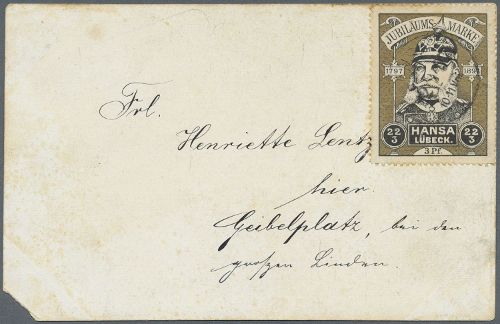 JUBILÄUMS MARKE
1797 1897
22/3 HANSA 22/3
LÜBECK.
3 Pf.
Frl.
Henriette Lentz
hier.
Geibelplatz, bei den
großen Linden.